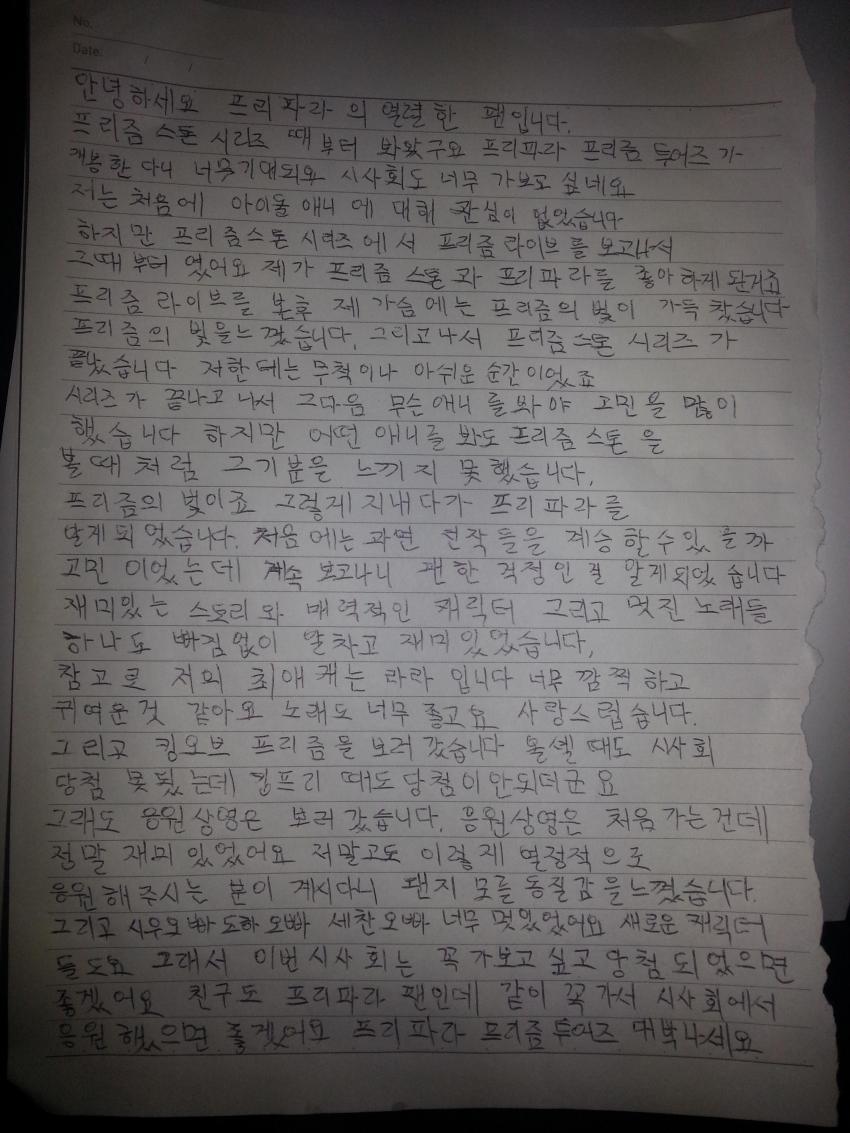 No.
Date: / /
안녕하세요 프리파라의 열렬한 팬입니다.
프리즘 스톤 시리즈 때부터 봐왔구요 프리파라 프리즘 투어즈가
개봉한다니 너무 기대되요 시사회도 너무 가보고 싶네요
저는 처음에 아이돌 애니에 대해 관심이 없었습니다
하지만 프리즘스톤 시리즈에서 프리즘 라이브를 보고나서
그때부터 였어요 제가 프리즘 스톤과 프리파라를 좋아하게 된거죠
프리즘 라이브를 본후 제 가슴에는 프리즘의 빛이 가득 찼습니다
프리즘의 빛을느꼈습니다. 그리고나서 프리즘스톤 시리즈가
끝났습니다 저한테는 무척이나 아쉬운 순간이었죠
시리즈가 끝나고 나서 그다음 무슨애니를 봐야 고민을 많이
했습니다 하지만 어떤 애니를 봐도 프리즘스톤을
볼때처럼 그기분을 느끼지 못했습니다.
프리즘의 빛이죠 그렇게 지내다가 프리파라를
알게되었습니다. 처음에는 과연 전작들을 계승할수있을까
고민이었는데 계속 보고나니 괜한 걱정인걸 알게되었습니다
재미있는 스토리와 매력적인 캐릭터 그리고 멋진 노래들
하나도 빠짐없이 알차고 재미있었습니다.
참고로 저의 최애캐는 라라 입니다 너무 깜찍하고
귀여운것 같아요 노래도 너무 좋고요 사랑스럽습니다.
그리고 킹오브 프리즘을 보러 갔습니다 올셀 때도 시사회
당첨 못됬는데 킹프리 때도 당첨이 안되더군요
그래도 응원상영은 보러갔습니다. 응원상영은 처음가는건데
정말 재미있었어요 저말고도 이렇게 열정적으로
응원해주시는 분이 계시다니 왠지 모를 동질감을느꼈습니다.
그리고 시우오빠 도하오빠 세찬오빠 너무 멋있었어요 새로운 캐릭터
들도요 그래서 이번시사회는 꼭 가보고싶고 당첨되었으면
좋겠어요 친구도 프리파라 팬인데 같이 꼭가서 시사회에서
응원했으면 좋겠어요 프리파라 프리즘투어즈 대박나세요